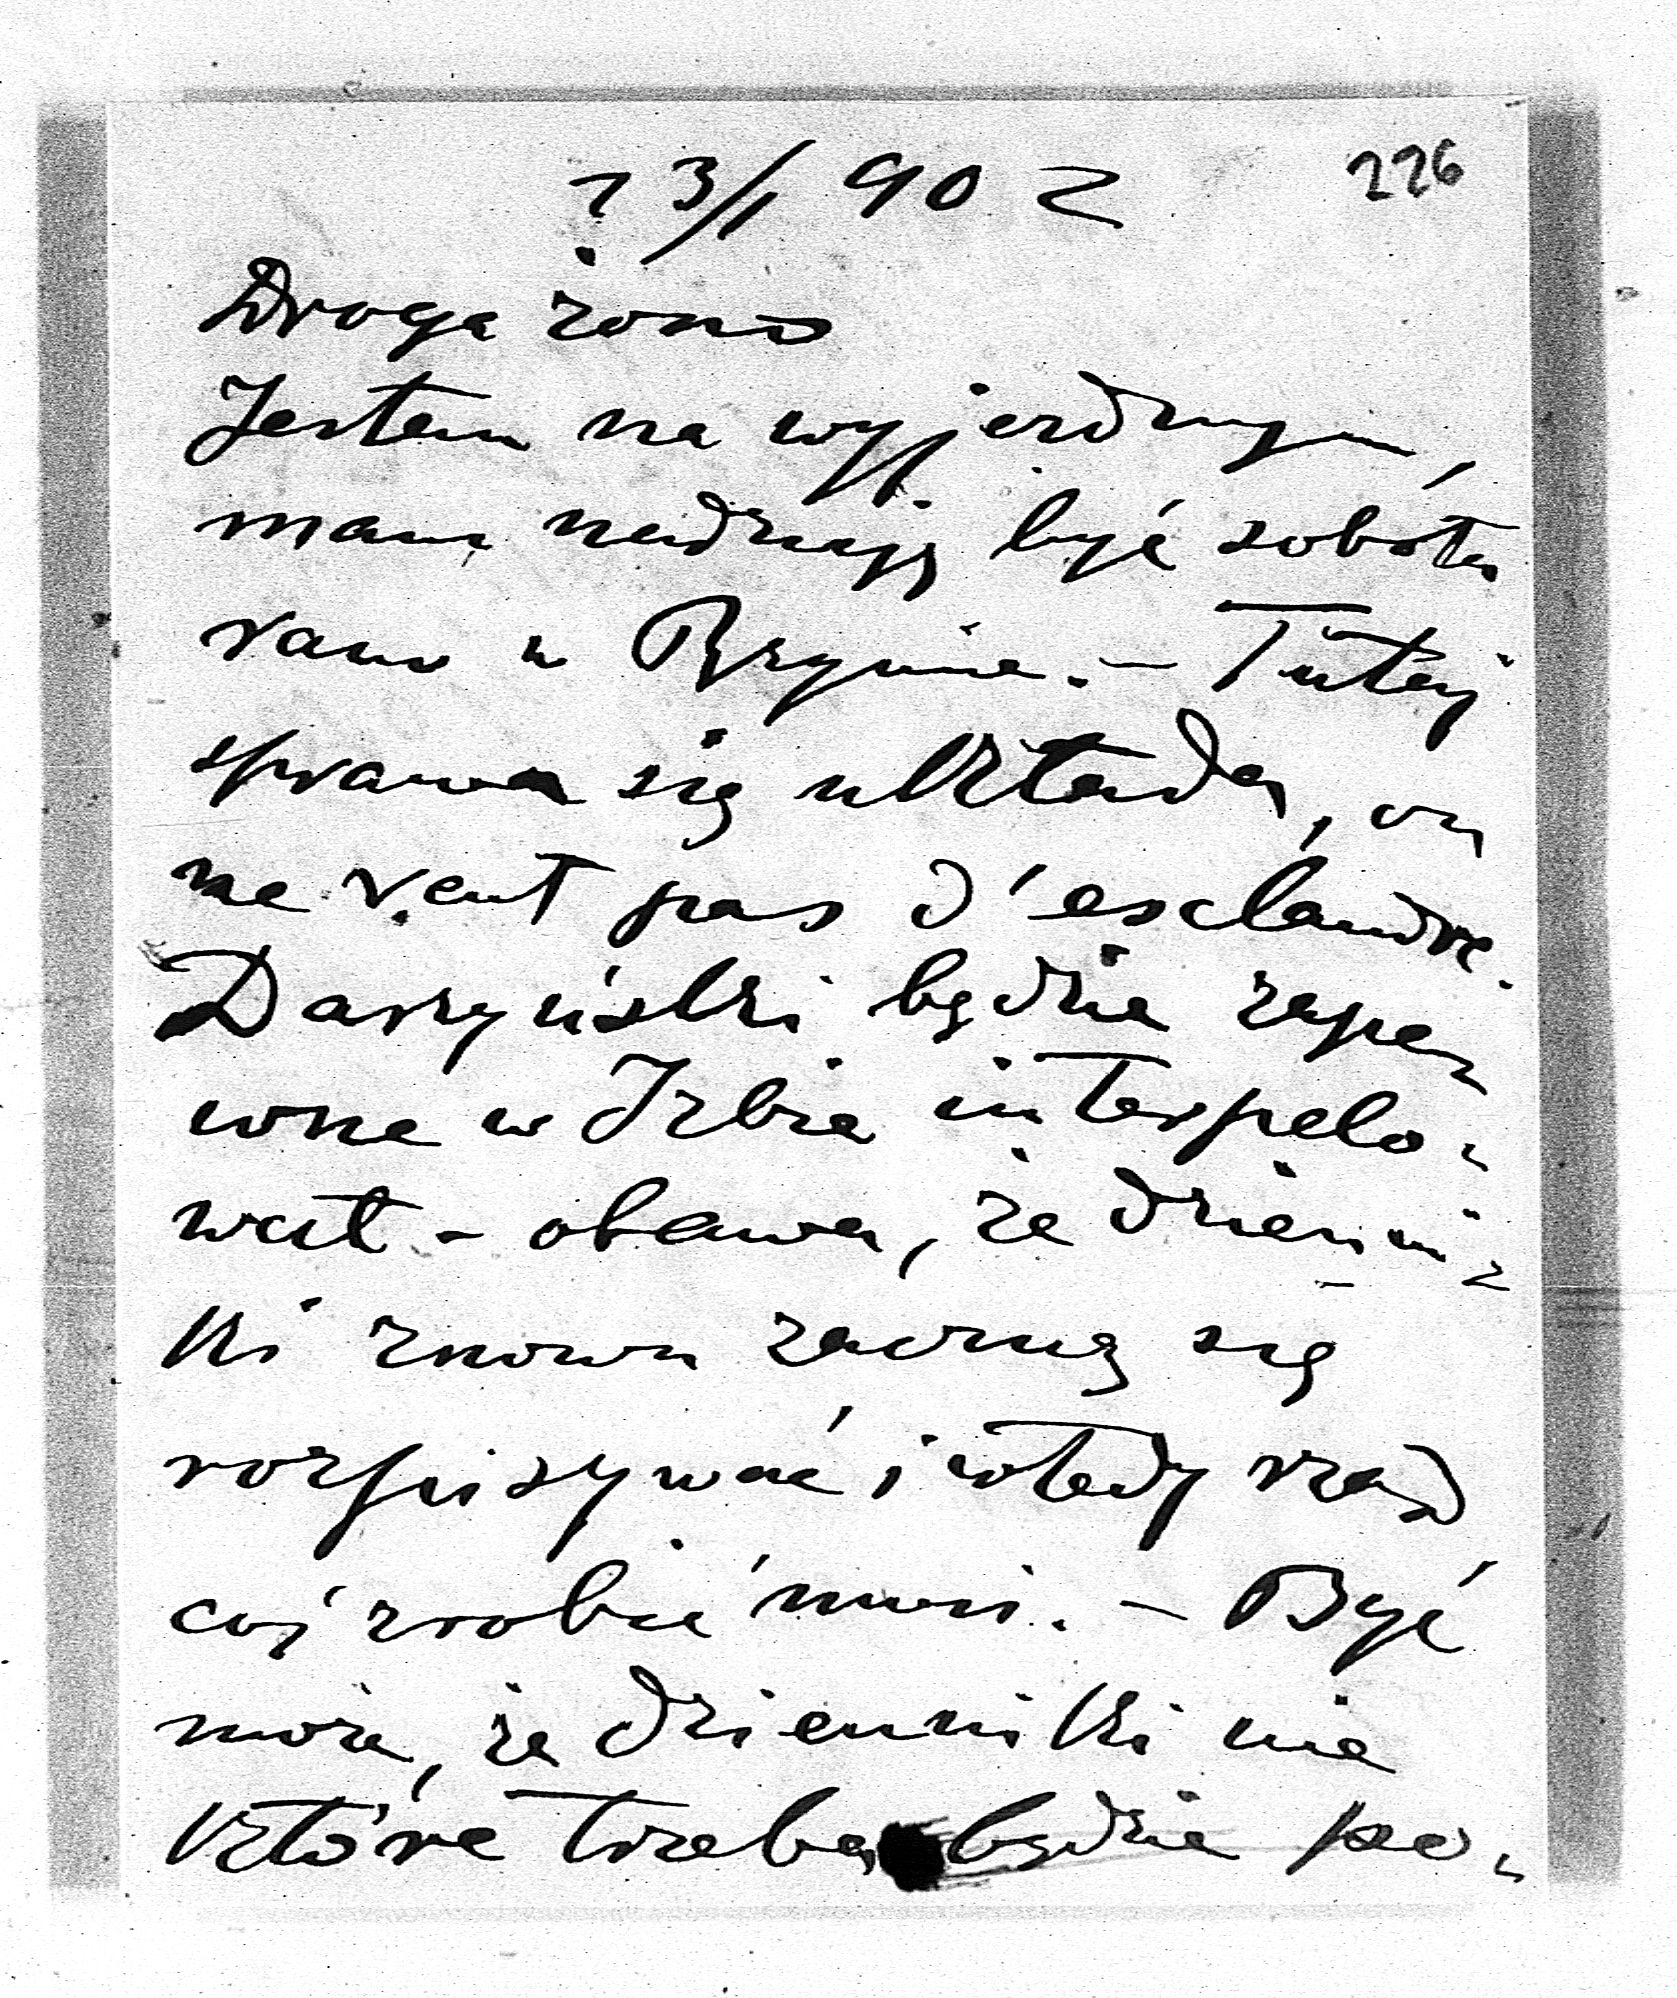 23/1 902
226
Droga żono
Jestem na wyjezdnym,
mam nadzieję być sobota
rano w Rzymie. – Tutej
sprawa się układa, on
ne veut pas d'esclandre.
Daszyński będzie zape-
wne w Izbie interpelo-
wał – obawa, że dzienni-
ki znowu zaczną się
rozpisywać i wtedy rząd
coś zrobić musi. – Być
może, że dzienniki nie
które trzeba będzie po-